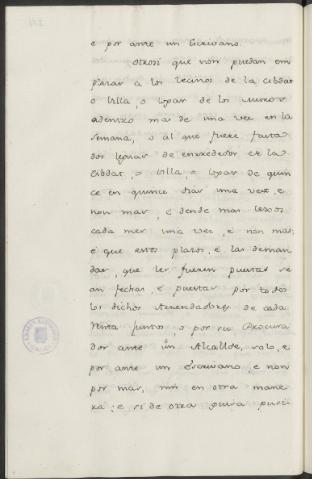 e por ante un Escrivano.
Otrosi que non puedan em
plasar a los vecinos de la cibdat
o villa, o logar de los muros
adentro mas de una vez en la
semana, o al que fuere
dos leguas de enrrededor de la
cibdat, o villa, o logar de quin
ce en quince dias una vez, e
non mas, e dende mas lexos
cada mes una vez, e non mas;
e que estos plasos, e las deman
das, que les fueren puestas se
an fechas, e puestas por todos
los dichos Arrendadores de cada
renta juntos, o por su Procura
dor ante un Alcallde solo, e
por ante un Escrivano, e non
por mas, nin en otra mane
ra; e si de otra guisa pusie